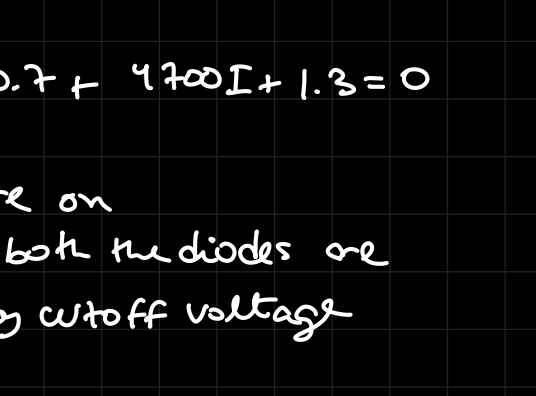 0.7 + 4700I + 1.3 = 0
on
both the diodes are
cutoff voltage